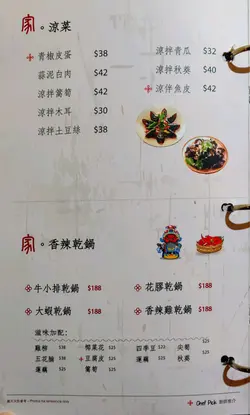 家。涼菜
青椒皮蛋 $38
蒜泥白肉 $42
涼拌萵筍 $42
涼拌木耳 $30
涼拌土豆絲 $38
涼拌青瓜 $32
涼拌秋葵 $40
涼伴魚皮 $42
家。香辣乾鍋
牛小排乾鍋 $188
花膠乾鍋 $188
大蝦乾鍋 $188
香辣雞乾鍋 $188
滋味加配:
雞柳 $38
椰菜花 $25
四季豆 $25
尖筍 $25
五花腩 $38
豆腐皮 $25
蓮藕 $25
秋葵 $25
蓮藕 $25
萵筍 $25
Chef Pick 廚師推介